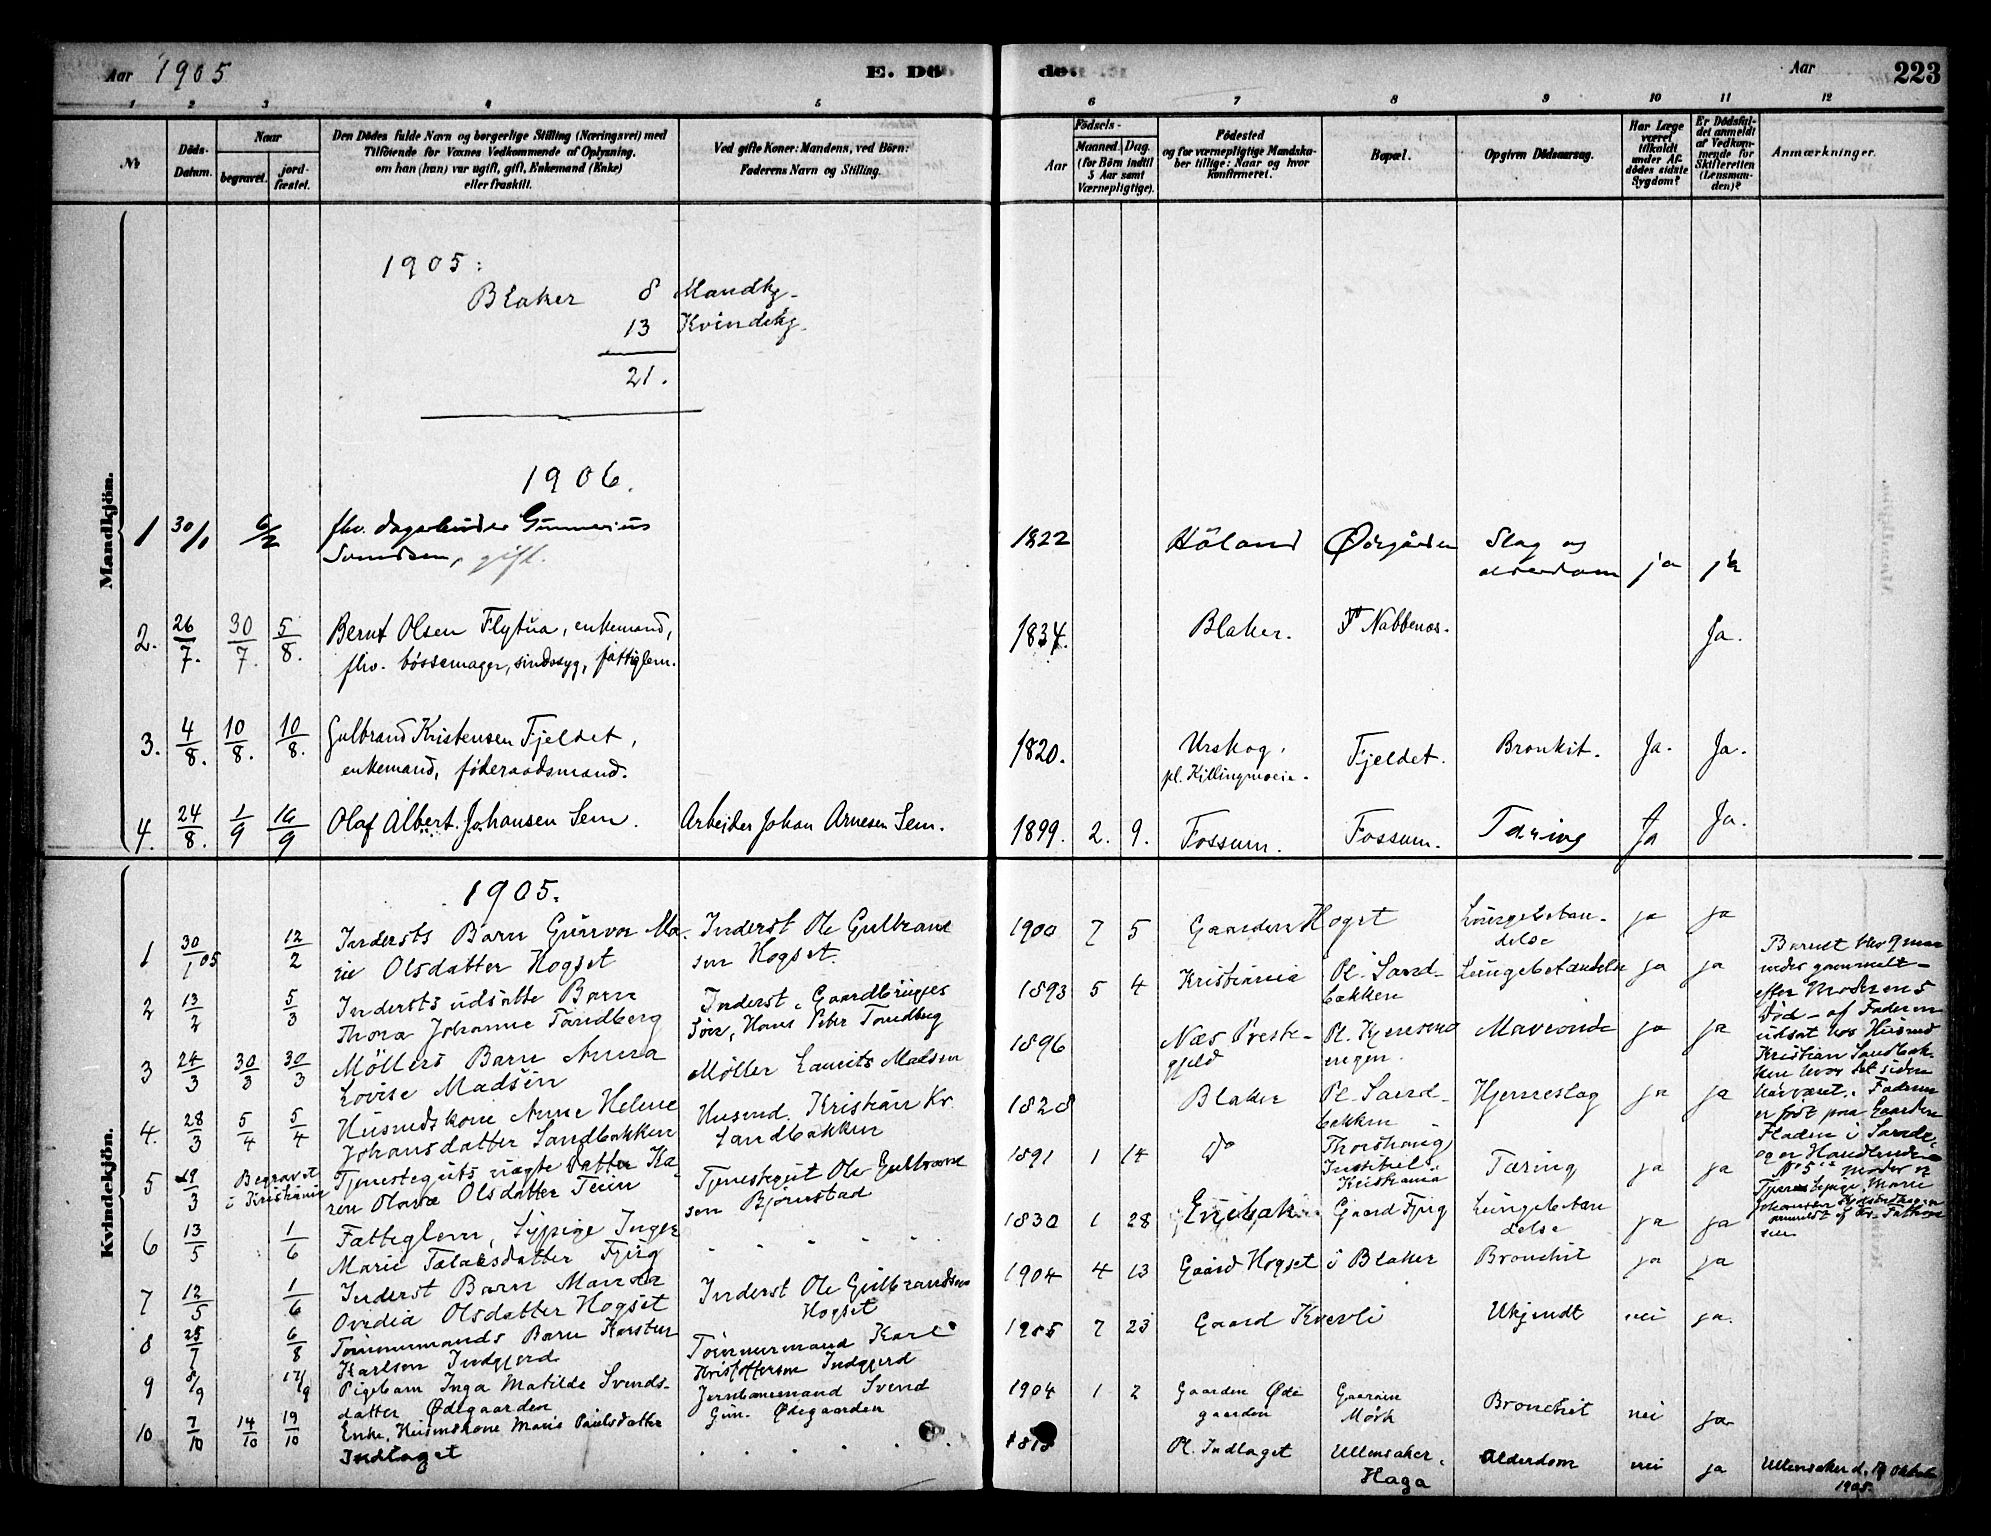 Aar 1905
E. Dö
de.
Aar 223
1 2 3 4 5 6 7 8 9 10 11 12
No
Döds-Datum.
Naar
begravet.
jordfæstet.
Den Dödes fulde Navn og borgerlige Stilling (Næringsvei) med
Tilföiende for Voxnes Vedkommende af Oplysning,
om han (hun) var ugift, gift, Enkemand (Enke)
eller fraskilt.
Ved gifte Koner: Mandens, ved Börn:
Faderens Navn og Stilling.
Födsels-
Aar
Maaned. Dag.
(for Börn indtil
5 Aar samt
Værnepligtige).
Födested
og for værnepligtige Mandska-
ber tillige: Naar og hvor
konfirmeret.
Bopæl.
Opgiven Dödsaarsag.
Har Læge
været
tilkaldt
under Af-
dödes sidste
Sygdom?
Er Dödsfal-
det anmeldt
af Vedkom-
mende for
Skifteretten
(Lensman-
den)?
Anmærkninger.
Mandkjön.
1905:
Blaker 8 Mandkj.
13 Kvindekj.
21.
1906.
1 30/1 6/2 fhv. dagarbeider Gunnerius 1822 Höland Ödegården Slag og
Svendsen, gift. alderdom ja ja
2. 26/7. 30/7. 5/8. Bernt Olsen Flytua, enkemand, 1834. Blaker. Nabbenes. Ja.
fhv. bössemager, sindssyg, fattiglem.
3. 4/8. 10/8. 10/8. Gulbrand Kristensen Fjeldet, 1820. Urskog, Fjeldet. Bronkit. Ja. Ja.
enkemand, föderaadsmand. pl. Killingmoeie.
4. 24/8. 1/9 16/9 Olaf Albert Johansen Sem. Arbeider Johan Arnesen Sem. 1899. 2. 9. Fossum. Fossum. Tæring Ja Ja.
Kvindekjön.
1905.
1 30/1 05 12/2 Indersts Barn Gunvor Ma- Inderst Ole Gulbrand 1900 7 5 Gaarden Hogset Lungebetæn- ja ja
rie Olsdatter Hogset sen Hogset. delse
2 13/2 5/3 Indersts udsatte Barn Inderst, Gaardbruges 1893 5 4 Kristiania Pl. Sand- Lungebetændelse ja ja
Thora Johanne Tandberg Sön, Hans Peter Tandberg bakken
3 24/3 30/3 30/3 Möllers Barn Anna Möller Laurits Madsen 1896 Næs Preste- Pl. ja ja
Lovise Madsen gjeld engen.
4. 28/3 5/4 5/4 Husmdskone Anne Helene Husmd. Kristian Kr. 1828 Blaker Pl. Sand- Hjerneslag ja ja
Johansdatter Sandbakken Sandbakken bakken
5 29/3 Begravet Tjenesteguts uægte datter Ka- Tjenestegut Ole Gulbrand 1891 1 14 Do Thorshaug Tæring ja ja
i Kristiania ren Olava Olsdatter Teien sen Björnstad Kristiania
6 13/5 1/6 Fattiglem, Pige Inger 1830 1 28 Enebak Gaard Fjug Lungebetæn ja ja
Marie Fjug delse
7 12/5 1/6 Inderst Barn Manda Inderst Ole Gulbrandsen 1904 4 13 Gaard Hogset i Blaker Bronchit ja ja
Ovedia Olsdatter Hogset Hogset
8 25/7 6/8 Tömmermands Barn Karsten Tömmermand Karl 1905 7 23 Gaard Kvevli Ukjendt nei ja.
Karlsen Indgjerd Kristoffersen Indgjerd
9 8/9 17/9 Pigebarn Inga Matilde Svends- Jernbanemand Svend 1904 1 2 Gaarden Öde Gaarden Bronchit nei ja
datter Ödegaarden Gun. Ödegaarden gaarden Mörk
10 7/10 14/10 19/10 Enke, Husmdskone Maris Paulsdatter 1818 Pl. Indlaget Ullensaker, Alderdom nei ja Ullensaker d. 19 Oktober
Indlaget Haga 1905.
Barnet blev 9 maa
neder gammelt
efter Moderens
död af Faderen
udsat hos Husmd
Kristian Sandbak-
ken hvor det siden
har været. Faderen
er föst paa Gaarden
Fladen i
og er Handlende
No 5's moder er
Tjenestepige Marie